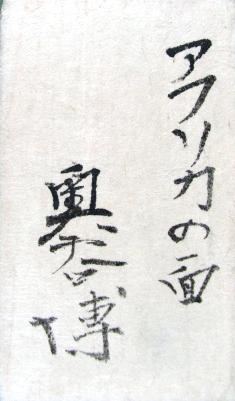 アフリカの面
奥谷博